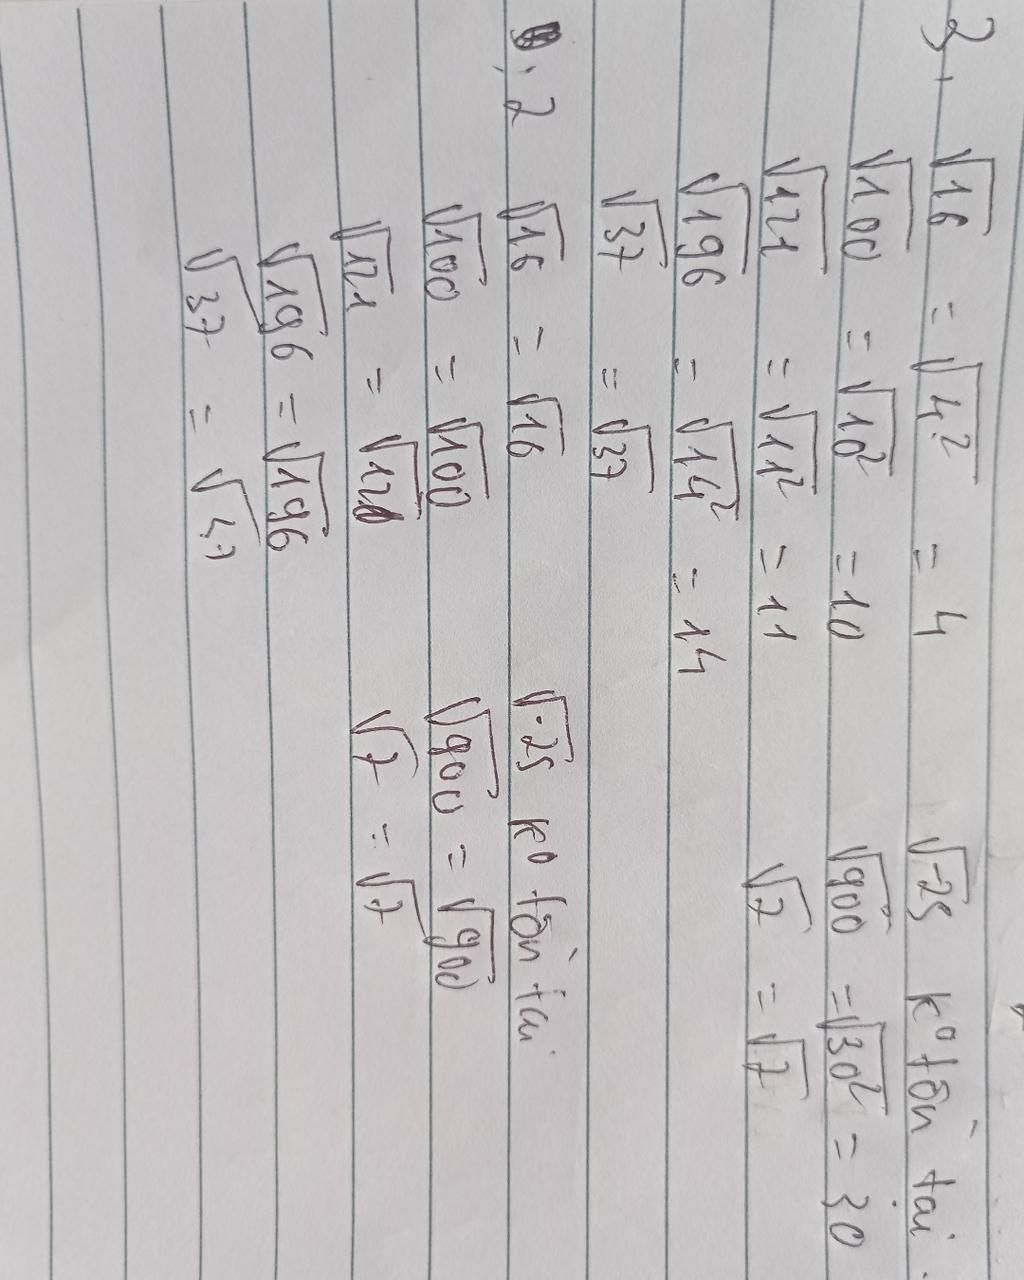 3, √16 = √4² = 4 √-25 k° tồn tại.
√100 = √10² = 10 √900 = √30² = 30
√121 = √11² = 11 √7 = √7
√196 = √14² = 14
√37 = √37
, 2 √16 = √16 √-25 k° tồn tai
√100 = √100 √900 = √900
√121 = √121 √7 = √7
√196 = √196
√37 = √